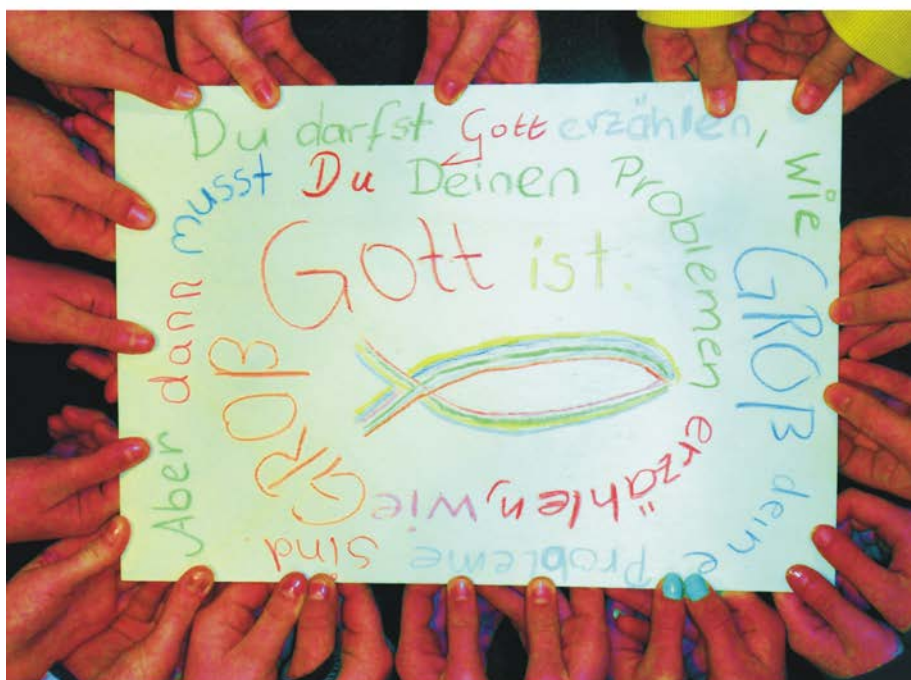 Du darfst Gott erzählen,
wie GROß deine
Probleme sind.
Aber dann musst Du Deinen Problemen
erzählen, wie
GROß
Gott ist.